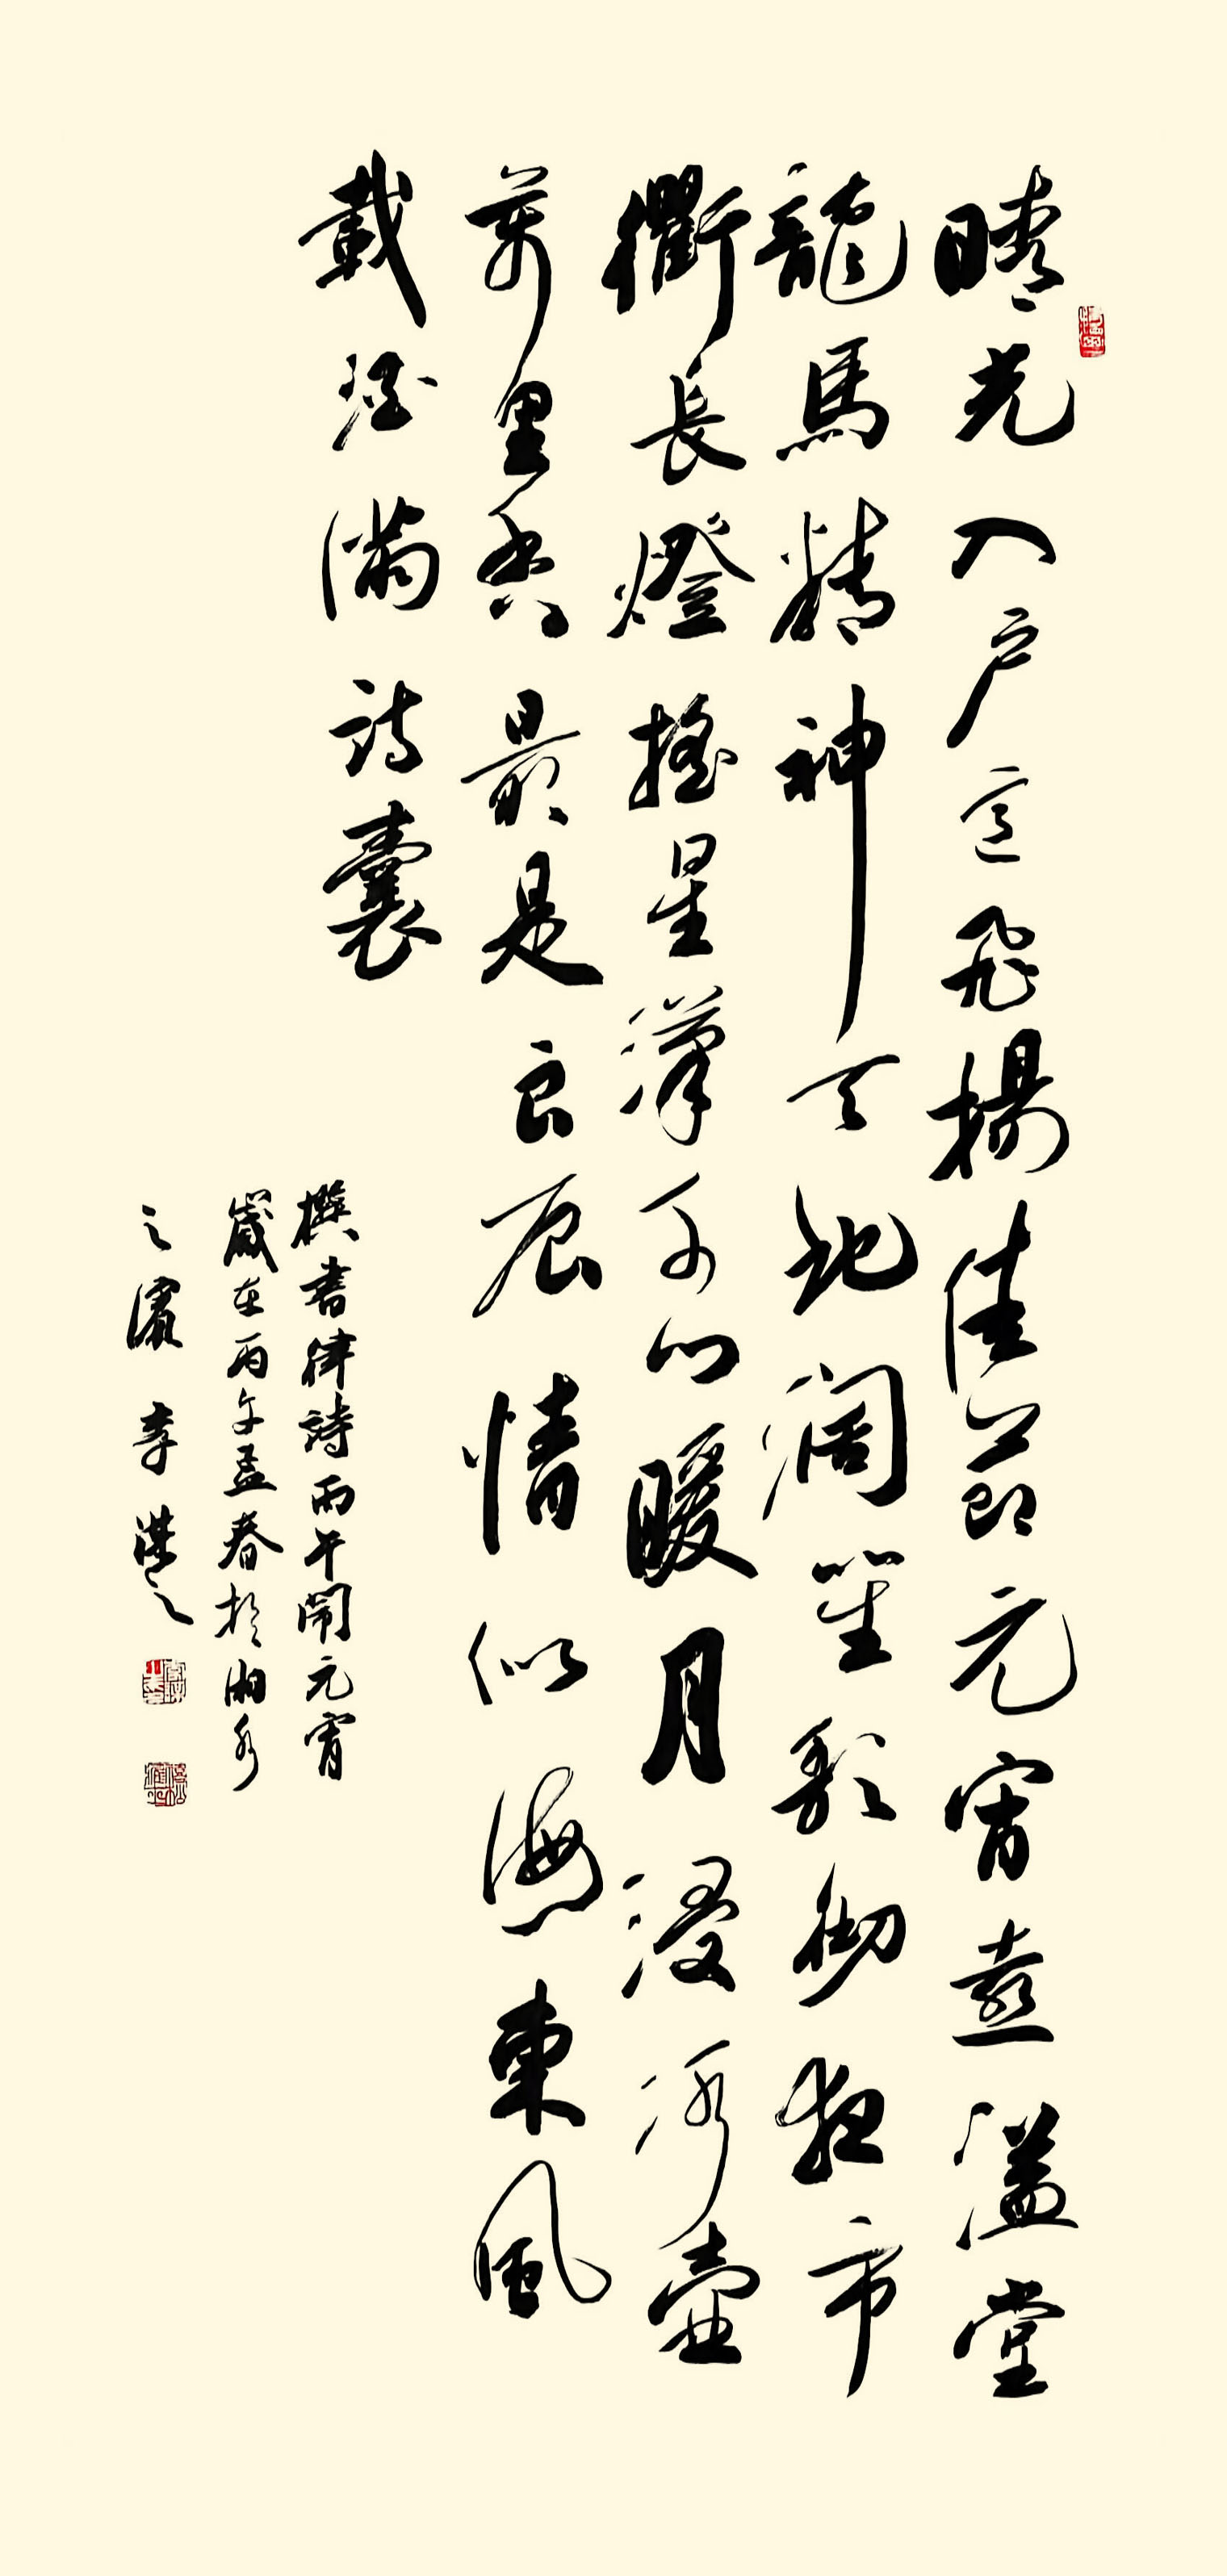 晴光入户意飛揚佳節元宵喜溢堂
龍馬精神天地闊笙歌徹夜市
衢長燈搖星漢千門暖月浸冰壺
萬里香最是良辰情似海東風
載酒滿詩囊
撰書律詩丙午鬧元宵
歲在丙午孟春於湘水
之濱李洪之